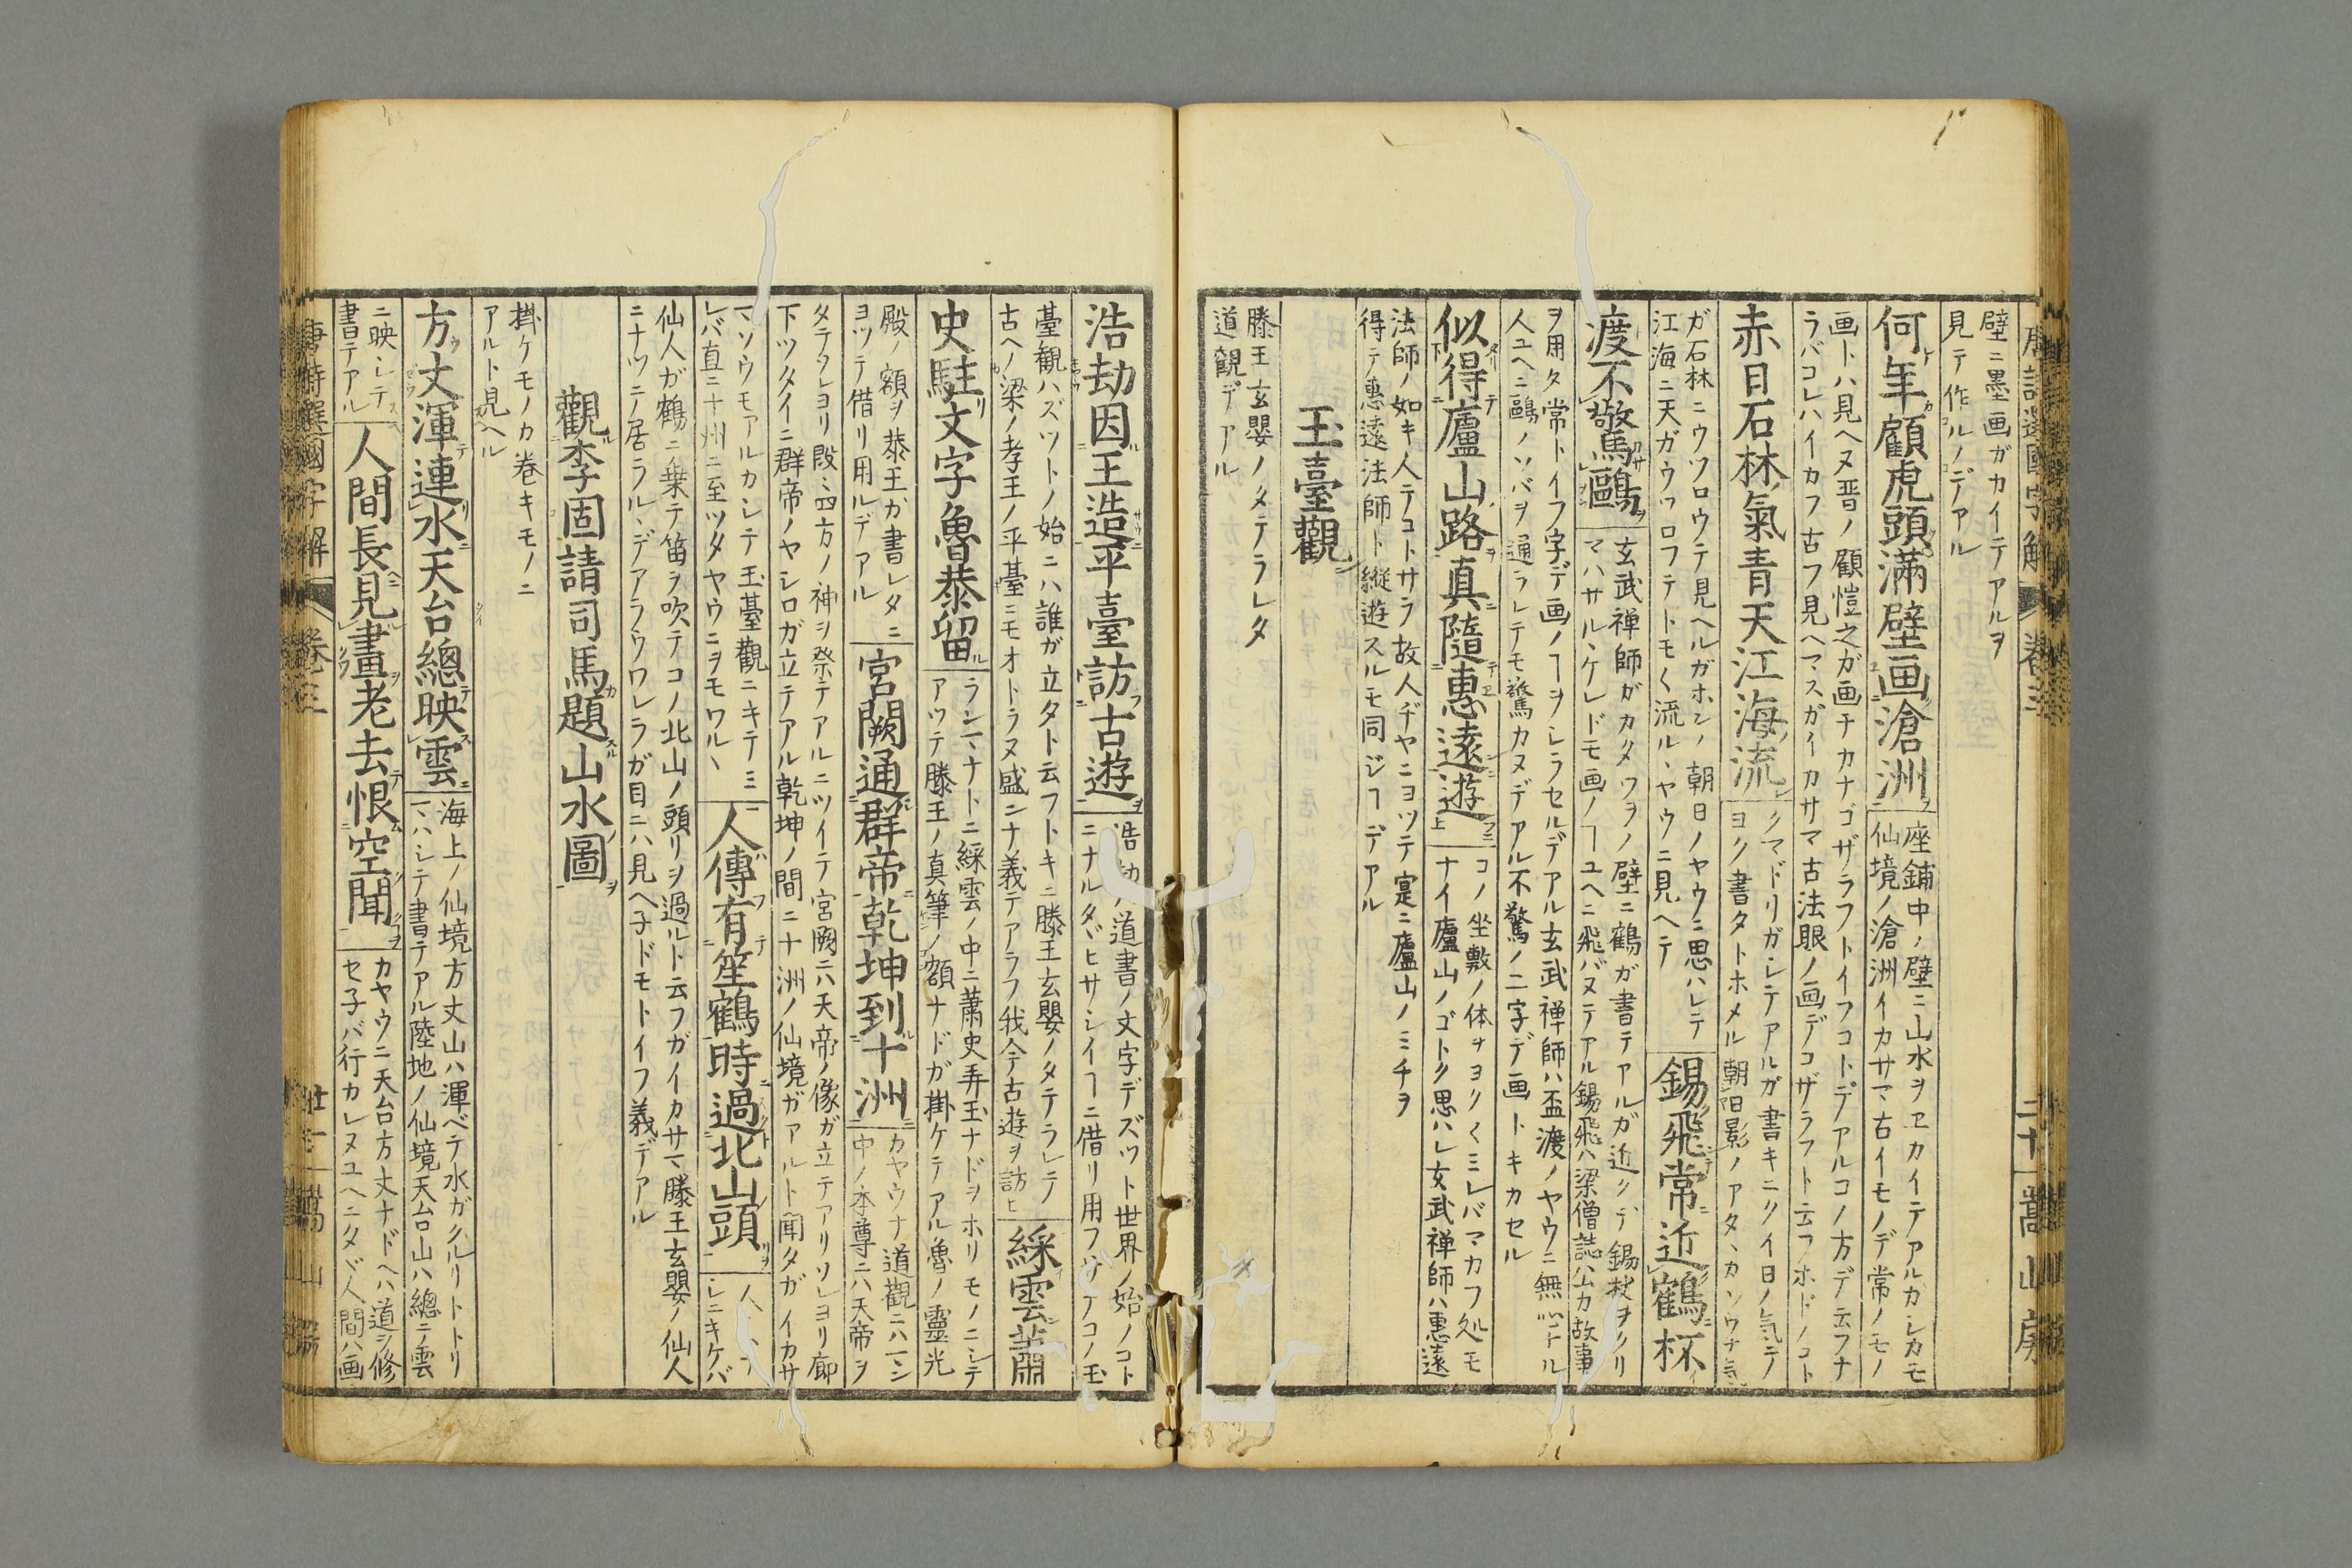 壁ニ墨画ガカイテアルヲ
見テ作ルノデアル
何年顧虎頭滿壁画滄洲
座鋪中ノ壁ニ山水ヲヱカイテアルカシカモ
仙境ノ滄洲イカサマ古イモノデ常ノモノ
画トハ見ヘヌ晋ノ顧愷之ガ画チカナゴザラフトイフコトデアルコノ方デ云フナ
ラバコレハイカフ古フ見ヘマスガイカサマ古法眼ノ画デコザラフト云フホドノコト
赤日石林氣青天江海流
クマドリガシテアルガ書キニクイ日ノ気デ
ヨク書タトホメル朝陽影ノアタヽカソウナ気
ガ石林ニウツロウテ見ヘルガホンノ朝日ノヤウニ思ハレテ
江海ニ天ガウツロフテトモ〳〵流ルヽヤウニ見ヘテ
錫飛常近鶴杯
渡不驚鷗
玄武禅師ガカタワラノ壁ニ鶴ガ書テアルガ近クデ錫杖ヲクリ
マハサルヽケレドモ画ノヿユヘニ飛バヌテアル錫飛ハ梁僧誌公カ故事
ヲ用タ常トイフ字デ画ノヿヲシラセルデアル玄武禅師ハ盃渡ノヤウニ無心ナル
人ユヘニ鷗ノソバヲ通ラレテモ驚カヌデアル不驚ノ二字デ画トキカセル
似得廬山路真隨惠遠遊
コノ坐敷ノ体ヲヨク〳〵ミレバマカフ処モ
ナイ廬山ノゴトク思ハレ玄武禅師ハ惠遠
法師ノ如キ人テコトサラ故人ヂヤニヨツテ寔ニ廬山ノミチヲ
得テ惠遠法師ト縦遊スルモ同ジヿデアル
玉臺觀
滕王玄嬰ノタテラレタ
道觀デアル
浩劫因王造平臺訪古遊
浩劫ノ道書ノ文字デズツト世界ノ始ノコト
ニナルタヾヒサシイヿニ借リ用フ
臺観ハズツトノ始ニハ誰ガ立タト云フトキニ滕王玄嬰ノタテラレテ
古ヘノ梁ノ孝王ノ平臺ニモオトラヌ盛ンナ義テアラフ我今古遊ヲ訪ヒ
綵雲蕭
史駐文字魯恭留
ランヽマナトニ綵雲ノ中ニ蕭史弄玉ナドヲホリモノニシテ
アツテ滕王ノ真筆ノ額ナドガ掛ケテアル魯ノ靈光
殿ノ額ヲ恭王カ書レタニ
ヨツテ借リ用ルデアル
宮闕通群帝乾坤到十洲
カヤウナ道觀ニハ一シ
中ノ本尊ニハ天帝ヲ
タテヽソレヨリ段々四方ノ神ヲ祭テアルニツイテ宮闕ニハ天帝ノ像ガ立テアリソレヨリ廊
下ツタイニ群帝ノヤシロガ立テアル乾坤ノ間ニ十洲ノ仙境ガアルト聞タガイカサ
マソウモアルカシテ玉臺觀ニキテミ
レバ直ニ十州ニ至ツタヤウニヲモワルヽ
人傳有笙鶴時過北山頭
仙人ガ鶴ニ乗テ笛ヲ吹テコノ北山ノ頭リヲ過ルト云フガイカサマ滕王玄嬰ノ仙人
ニナツニノ居ラルヽデアラウワレラガ目ニハ見ヘ子ドモトイフ義デアル
觀李固請司馬題山水圖
掛ケモノカ巻キモノニ
アルト見ヘル
方丈渾連水天台總映雲
海上ノ仙境方丈山ハ渾ベテ水ガクルリトトリ
マハシテ書テアル陸地ノ仙境天台山ハ總ニ雲
ニ映シテ
書テアル
人間長見畫老去恨空聞
カヤウニ天台方丈ナドヘハ道シ修
セ子バ行カレヌユヘニタヾ人間ハ画
唐詩選國字解 巻三 嵩山房